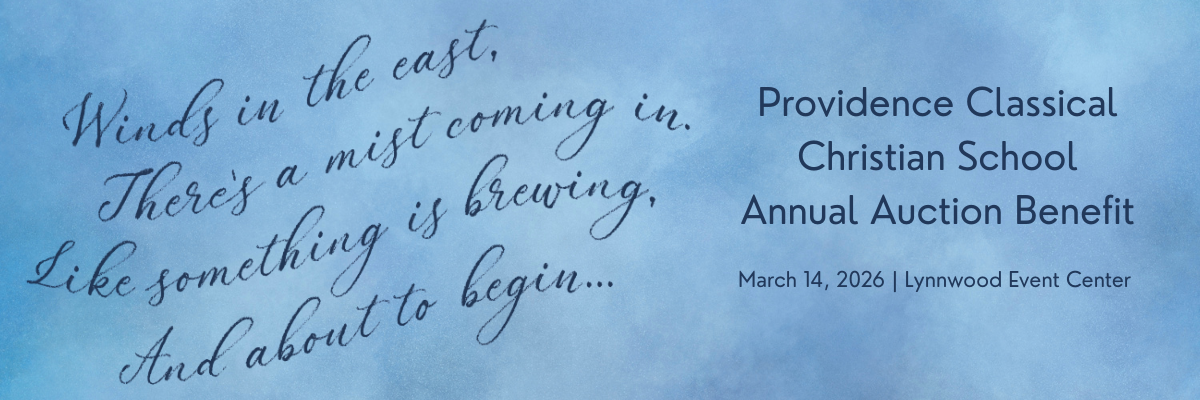 Winds in the east,
There's a mist coming in.
Like something is brewing,
And about to begin...
Providence Classical
Christian School
Annual Auction Benefit
March 14, 2026 | Lynnwood Event Center